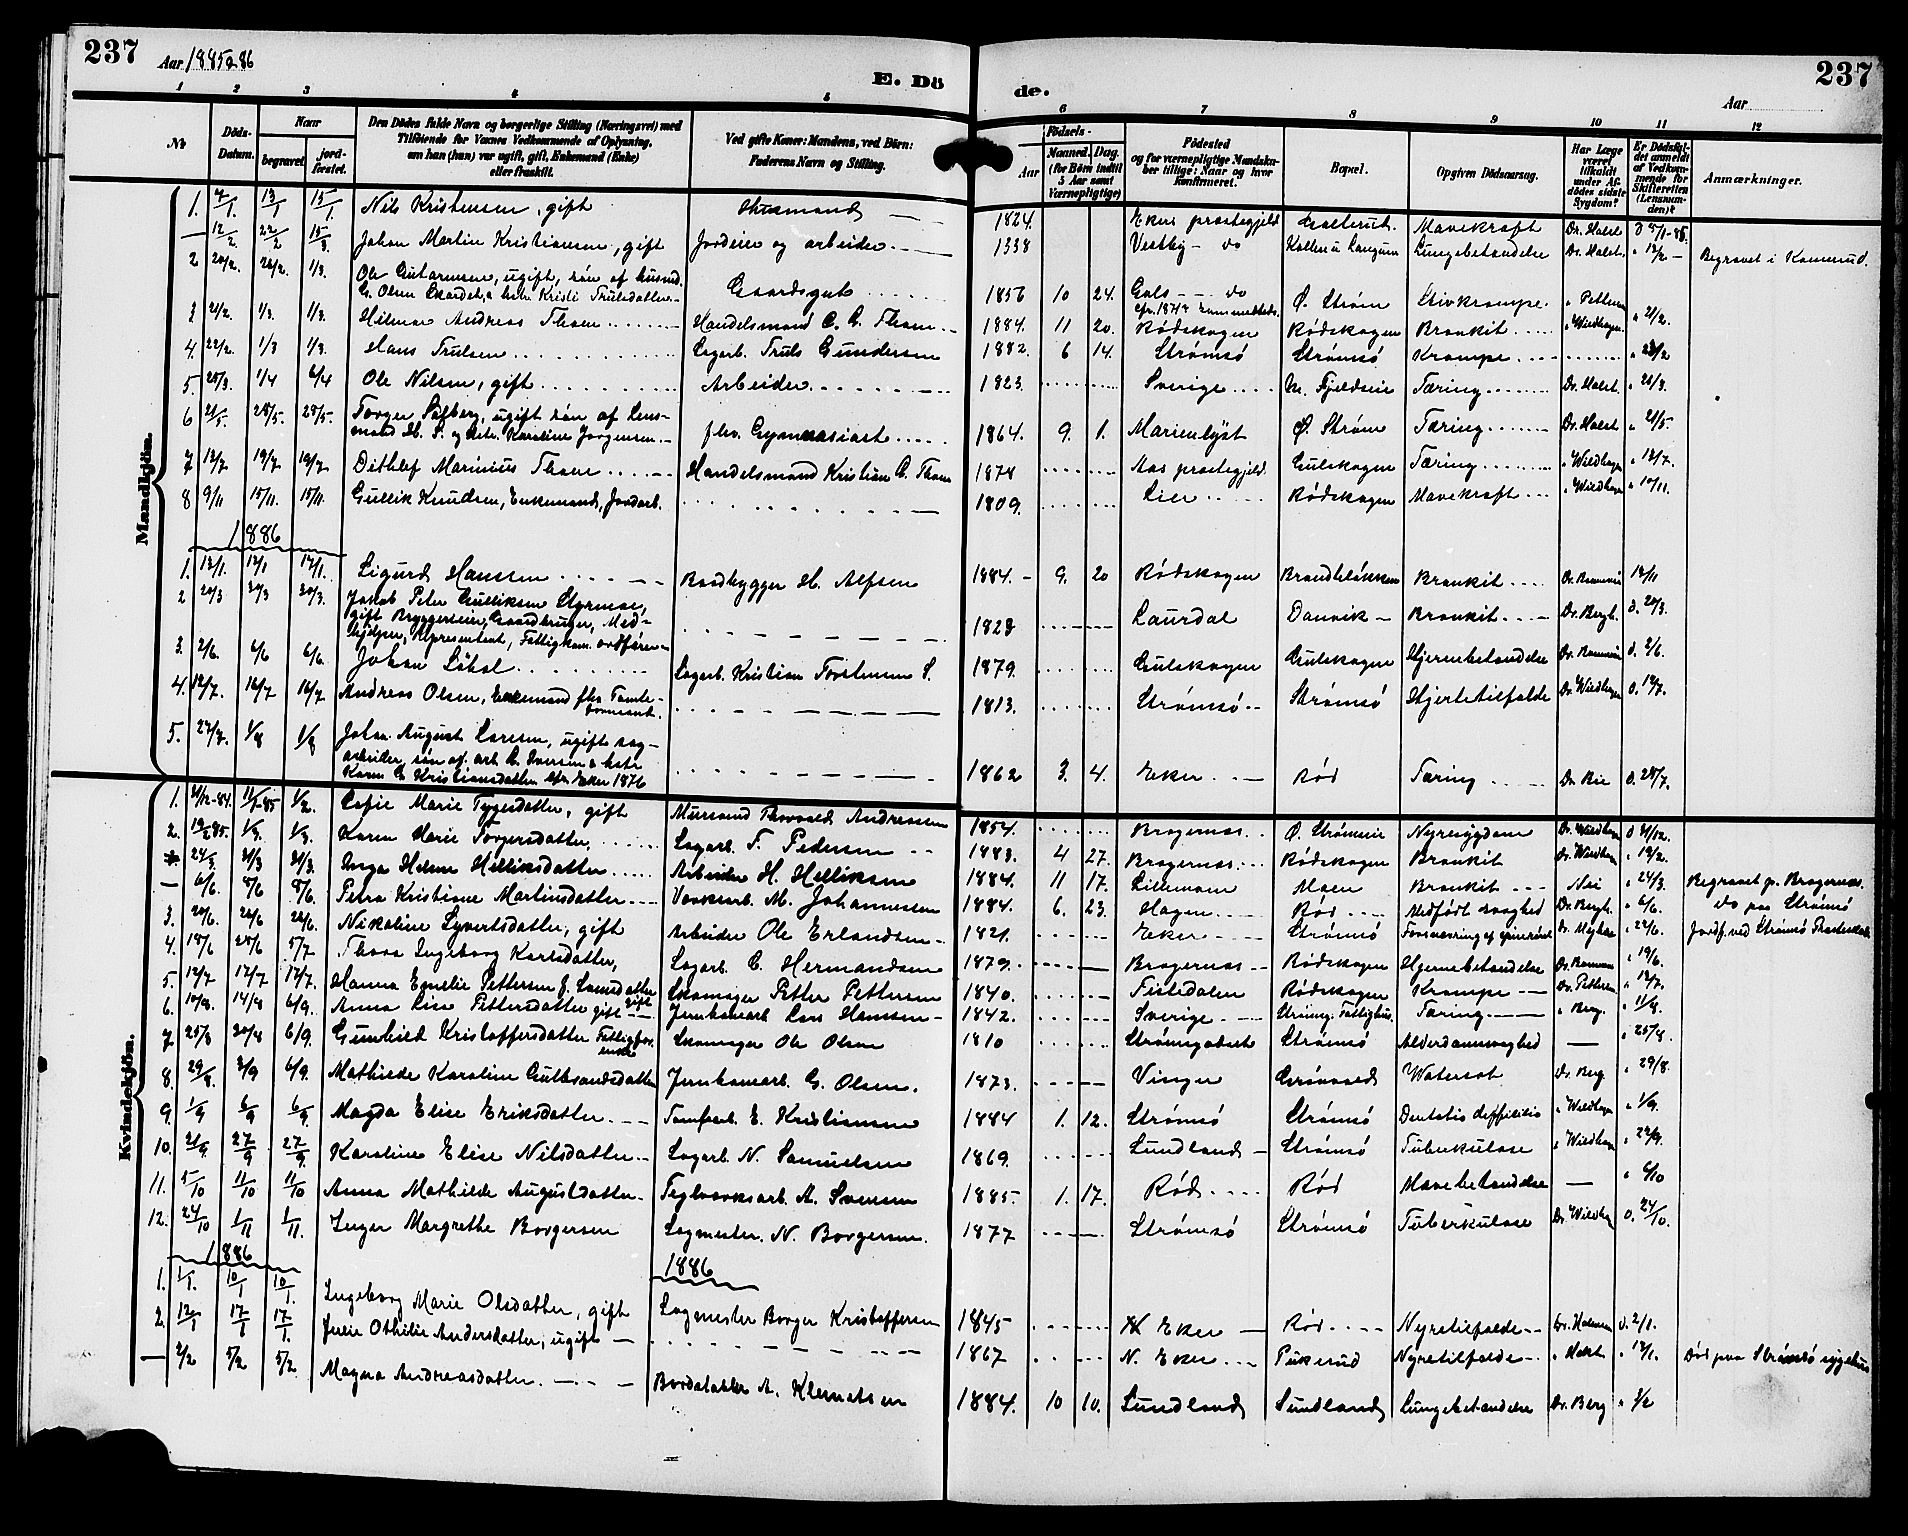 237
Aar 1885 & 86
E. Dö
de.
237
Aar
1 2 3 4 5 6 7 8 9 10 11 12
No
Döds-Datum.
Naar
begravet
jordfæstet.
Den Dödes fulde Navn og borgerlige Stilling (Næringsvei) med
Tilföiende for Voxnes Vedkommende af Oplysning,
om han (hun) var ugift, gift, Enkemand (Enke)
eller fraskilt.
Ved gifte Koner: Mandens, ved Börn:
Faderens Navn og Stilling.
Födsels-
Aar
Maaned. Dag.
(for Börn indtil
5 Aar samt
Værnepligtige)
Födested
og for værnepligtige Mandska-
ber tillige: Naar og hvor
konfirmeret.
Bopæl.
Opgiven Dödsaarsag.
Har Læge
været
tilkaldt
under Af-
dödes sidste
Sygdom?
Er Dödsfal-
det anmeldt
af Vedkom-
mende for
Skifteretten
(Lensman-
den)?
Anmærkninger.
Mandkjön.
1. 7/1. 13/1 15/1. Nils Kristensen, gift Husmand 1824. Ekers prestegjeld Mavekræft Dr. Holst
— 12/2. 22/2 Johan Martin Kristiansen, gift Jordeier og arbeider 1838 Vestby - do Lungebetændelse Dr. Holst. Begravet i Komnerud.
2 20/2. 26/2. 1/3. Ole Gutormsen, ugift, søn af husmd.
G. Olsen & hstr. Kristi Trulsdatter Gaardsgut 1856 10 24. Gols - do Ø. Strøm Stivkrampe.
3 21/2. 1/3. 1/3. Hilmar Andreas Thom Handelsmand C. A. Thom 1884. 11 20. Rødskogen Rødskogen Bronkit Wildhagen 21/2.
4. 22/2. 1/3 1/3. Hans Trulsen Sagarb. Truls Gundersen 1882. 6 14. Strømsø Strømsø Krampe 23/2
5. 25/3. 1/4 6/4 Ole Nilsen, gift Arbeider 1823. Sverige N. Fjeldseie Tæring Dr. Holst. 26/3.
6 21/5. 28/5. 28/5. Torger Solberg, ugift søn af Lens-
mand H. S. og hstr. Karoline Jørgensen fhv. Gymnasiast 1864. 9. 1. Marienlyst Ø. Strøm Tæring Dr. Holst 21/5
7 13/7 19/7 19/7 Dithlef Marinius Thom Handelsmand Kristian A. Thom 1878 Aas prestegjeld. Gulskogen Tæring Wildhagen 13/7.
8 9/11 15/11. 15/11. Gullik Knudsen, Enkemand, Jordarb. 1809. Lier Rødskogen Mavekræft Wildhagen 10/11.
1886
1. 13/1. 17/1 17/1. Sigurd Hanssen Baadbygger H. Alfsen 1884. 9. 20 Rødskogen Brandtløkken Bronkit
2 20/3 30/3 30/3. Jakob Peter Gulliksen Styrmoe,
gift Bryggerieier, Gaardbruger, Med-
hjelper, Representant, Fattigkom. ordfører 1828 Laurdal Danvik Bronkit Dr. Bergh.
3. 2/6. 6/6 6/6. Johan Løkol Sagarb. Kristian Torstensen S. 1879. Gulskogen Gulskogen Hjernebetændelse 2/6.
4. 12/7. 16/7 16/7 Andreas Olsen, Enkemand fhv. Tomte-
formand. 1813. Strømsø Strømsø Hjertetilfælde Dr. Wildhagen
5. 27/7. 1/8 1/8 Johan August Larsen, ugift sag-
arbeider, søn af arb. L. Iversen & hstr.
Karen G. Kristiansdatter. Kfr. Eker 1876 1862 3. 4. Eker Rød Tæring Dr. Bie 28/7.
Kvindekjön.
1. 21/12-84. 11/1-85 1/2. Sofie Marie Tygesdatter, gift Mursvend Thorvald Andreassen 1854. Bragernæs Ø. Strømseie Nyresygdom Dr. Wildhagen 21/12.
2. 19/2 85. 1/3. 1/3. Karen Marie Torgersdatter Sagarb. T. Pedersen 1883. 4 27. Bragernæs Rødskogen Bronkit Dr. Wildhagen 19/2.
* 24/3 31/3 31/3. Inga Helene Helliksdatter Arbeider H. Helliksen 1884. 11 17. Lillemoen Moen Bronkit Nei 24/3. Begravet p. Bragernæs.
— 6/6. 8/6 8/6. Petra Kristiane Martinsdatter Værksarb. M. Johannessen 1884. 6. 23. Hagen Rød Medfødt svaghed Dr. Bergh. 6/6. do paa Strømsø
3. 20/6. 26/6 26/6. Nikoline Syvertsdatter, gift Arbeider Ole Erlandsen 1821. Eker Strømsø 22/6. Jordf. ved Strømsø
4. 18/6 25/6 5/7 Thora Ingeborg Karlsdatter, Sagarb. C. Hermandsen 1879. Bragernæs Rødskogen Hjernebetændelse 19/6.
5. 12/7 17/7 17/7. Hanna Emelie Pettersen gift Skomager Petter Pettersen 1840. Tistedalen Rødskogen Krampe Dr. Pettersen 13/7.
6. 10/8. 14/8 6/9. Anna Lise Pettersdatter gift Jernbanearb. Lars Hanssen 1842. Sverige Strømsg. Fattighus. Tæring Berg. 11/8.
7 25/8 30/8 6/9. Gunhild Kristoffersdatter Fattigfor. enke Skomager Ole Olsen 1810 Strømsgodset Strømsø Alderdomssvaghed — 25/8.
8. 29/8. 3/9 6/9. Mathilde Karoline Gulbrandsdatter Jernbanearb. G. Olsen. 1873. Vinger Grønvold Watersot Dr. Berg 29/8.
9. 1/9 6/9 6/9. Magda Elise Eriksdatter Tomtearb. E. Kristiansen 1884 1. 12. Strømsø Strømsø Dentatis deffisilis Wildhagen 1/9.
10. 21/9 27/9 27/9. Karoline Elise Nilsdatter Sagarb. N. Samuelsen 1869. Sundland Strømsø Tuberkulose Wildhagen 22/9.
11. 5/10 11/10 11/10 Anna Mathilde Augustdatter Teglværksarb. A. Svensen 1885. 1. 17. Rød Rød Mavebetændelse — 6/10
12. 24/10 1/11 1/11. Inger Margrethe Borgersen Sagmester. N. Borgersen. 1877 Strømsø Strømsø Tuberkulose Dr. Wildhagen 24/10.
1886 1886
1. 1/1. 10/1 10/1. Ingeborg Marie Olsdatter, gift Sagmester Borger Kristoffersen 1845 Eker Rød Nyretilfælde 2/1.
2. 12/1 17/1 17/1. Julie Othilie Andersdatter, ugift 1867 N. Eker Pukerud Nyretilfælde Holst 12/1. Død paa Strømsø sygehus
— 2/2 5/2 5/2. Magna Andreasdatter. Bordstabler A. Klemetsen 1884. 10 10. Sundland Sundland Lungebetændelse Dr. Berg 3/2